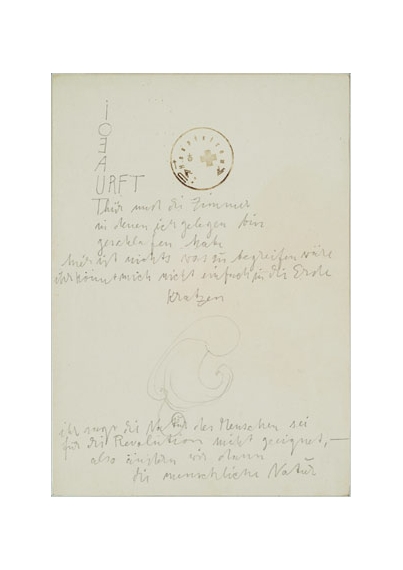 i
O
E
A
URFT
HAUPTSTROM
Thür und die Zimmer
in denen ich gelegen bin
geschlafen hab
hier ist nichts was zu begreifen wäre
ihr könnt mich nicht einfach in die Erde
kratzen
ihr sagt die Natur des Menschen sei
für die Revolution nicht geeignet,—
also ändern wir dann
die menschliche Natur